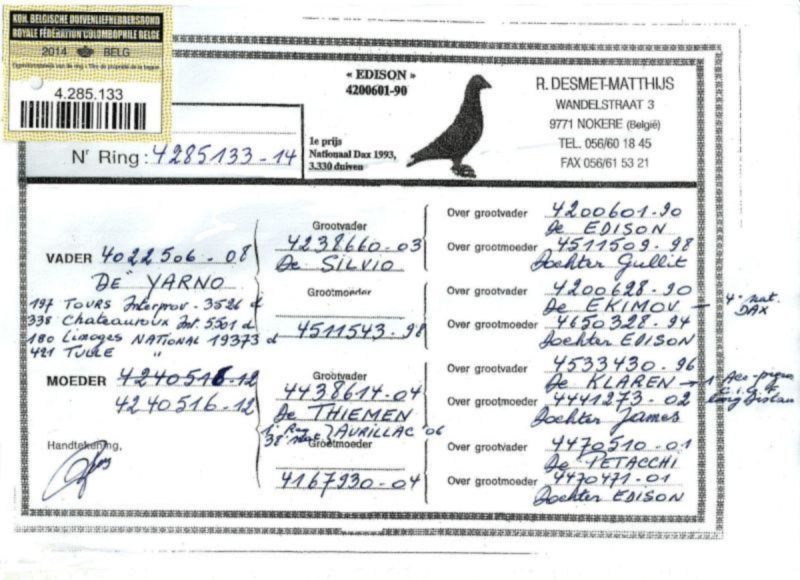 KON. BELGISCHE DUIVENLIEFHEBBERSBOND
ROYALE FÉDÉRATION COLOMBOPHILE BELGE
2014 BELG
4.285.133
Nr Ring : 4285133-14
« EDISON »
4200601-90
1e prijs
Nationaal Dax 1993,
3.330 duiven
R. DESMET-MATTHIJS
WANDELSTRAAT 3
9771 NOKERE (België)
TEL. 056/60 18 45
FAX 056/61 53 21
VADER 4022506-08
"DE YARNO
197 TOURS Interprov. - 3526 d
338 Chateauroux Int. 5501 d
180 Limoges NATIONAL 19373 d
421 TULLE "
MOEDER 4240516-12
4240516-12
Handtekening,
Grootvader
4238660-03
De SILVIO
Grootmoeder
4511543-98
Grootvader
4438614-04
De THIEMEN
38e nat AURILLAC '06
Grootmoeder
4167930-04
Over grootvader 4200601-90
De EDISON
Over grootmoeder 4511509-98
Dochter Gullit
Over grootvader 4200628-90
De EKIMOV - 4e nat. DAX
Over grootmoeder 4650328-94
Dochter EDISON
Over grootvader 4533430-96
De KLAREN - 1
Over grootmoeder 4441273-02
Dochter James
Over grootvader 4470510-01
De PETACCHI
Over grootmoeder 4470471-01
Dochter EDISON